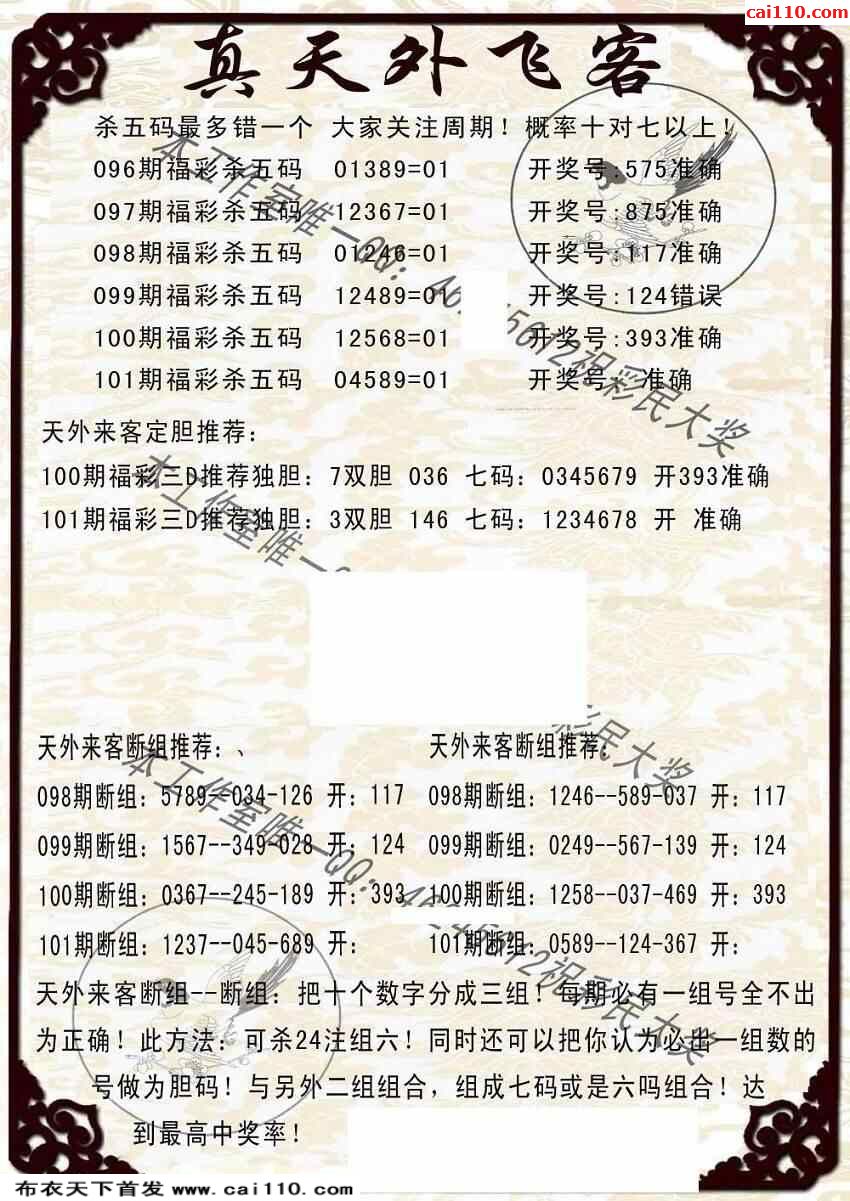 cai110.com
真天外飞客
杀五码最多错一个 大家关注周期！概率十对七以上！
096期福彩杀五码 01389=01 开奖号:575准确
097期福彩杀五码 12367=01 开奖号:875准确
098期福彩杀五码 01246=01 开奖号:117准确
099期福彩杀五码 12489=01 开奖号:124错误
100期福彩杀五码 12568=01 开奖号:393准确
101期福彩杀五码 04589=01 开奖号: 准确
天外来客定胆推荐：
100期福彩三D推荐独胆：7双胆 036 七码：0345679 开393准确
101期福彩三D推荐独胆：3双胆 146 七码：1234678 开 准确
天外来客断组推荐：、 天外来客断组推荐：
098期断组：5789--034-126 开：117 098期断组：1246--589-037 开：117
099期断组：1567--349-028 开：124 099期断组：0249--567-139 开：124
100期断组：0367--245-189 开：393 100期断组：1258--037-469 开：393
101期断组：1237--045-689 开： 101期断组：0589--124-367 开：
天外来客断组--断组：把十个数字分成三组！每期必有一组号全不出
为正确！此方法：可杀24注组六！同时还可以把你认为必出一组数的
号做为胆码！与另外二组组合，组成七码或是六吗组合！达
到最高中奖率！
布衣天下首发 www.cai110.com
本工作室唯一QQ：
祝彩民大奖
本工作室唯一
彩民大奖
本工作室唯一QQ：
祝彩民大奖